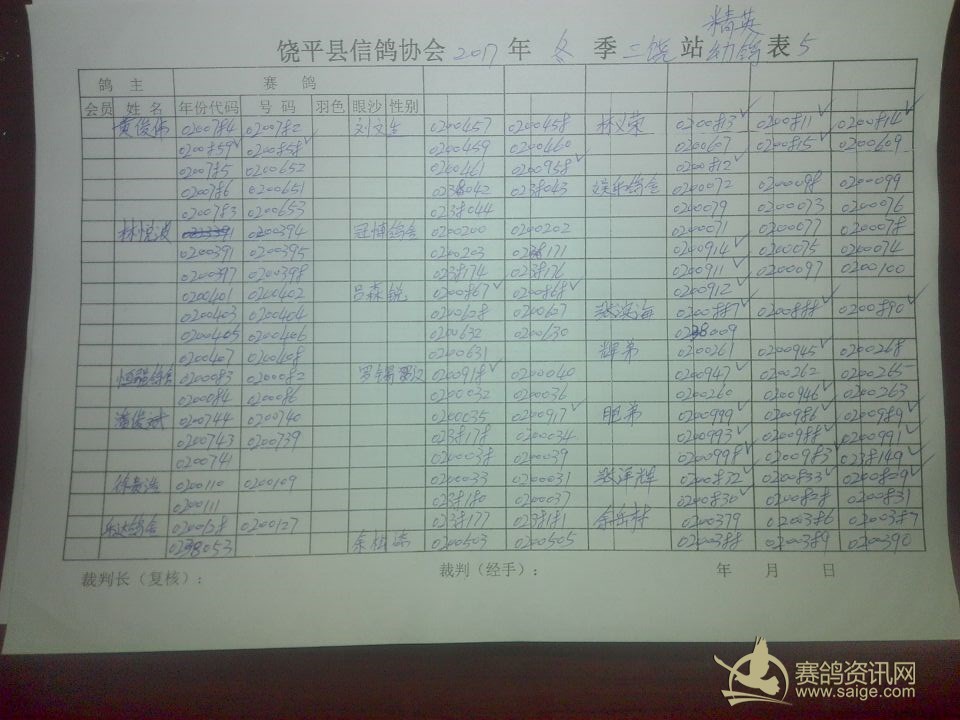 精英
饶平县信鸽协会 2017 年 冬 季 三饶 站 幼鸽 表 5
鸽 主 赛 鸽
会员 姓 名 年份代码 号 码 羽色 眼沙 性别
黄俊伟 0200784 0200782 刘文生 0200457 0200458 林义荣 0200813✓ 0200811✓ 0200814✓
0200859✓ 0200858✓ 0200459 0200460 0200607 0200815✓ 0200609
0200785 0200652 0200461 0200958✓ 0200812✓
0200786 0200651 0238042 0238043 0200072 0200098 0200099
0200783 0200653 0238044 0200079 0200073 0200076
林悦波 0200394 冠博鸽舍 0200200 0200202 0200071 0200077 0200078
0200391 0200395 0200203 0238171 0200914✓ 0200075 0200074
0200397 0200398 0238174 0238176 0200911✓ 0200097 0200100
0200401 0200402 吕森锐 0200867✓ 0200868✓ 0200912✓
0200403 0200404 0200628 0200627 0200887✓ 0200888✓ 0200890✓
0200405 0200406 0200632 0200630 0238009
0200407 0200408 0200631 辉弟 0200261 0200945✓ 0200268
0200083 0200082 0200918✓ 0200040 0200947✓ 0200262 0200265
0200084 0200086 0200032 0200036 0200260 0200946✓ 0200263
0200744 0200740 0200035 0200917✓ 0200999✓ 0200986✓ 0200989✓
0200743 0200739 0238178 0200034 0200993✓ 0200988✓ 0200991✓
0200741 0200038 0200039 0200998✓ 0200983✓ 0238149✓
0200110 0200109 0200033 0200031 张泽辉 0200832✓ 0200833✓ 0200829✓
0200111 0238180 0200037 0200830✓ 0200828 0200831
0200128 0200127 0238177 0238181 余岳林 0200379 0200386 0200387
0238053 0200503 0200505 0200388 0200389 0200390
裁判长（复核）： 裁判（经手）： 年 月 日
赛鸽资讯网
www.saige.com